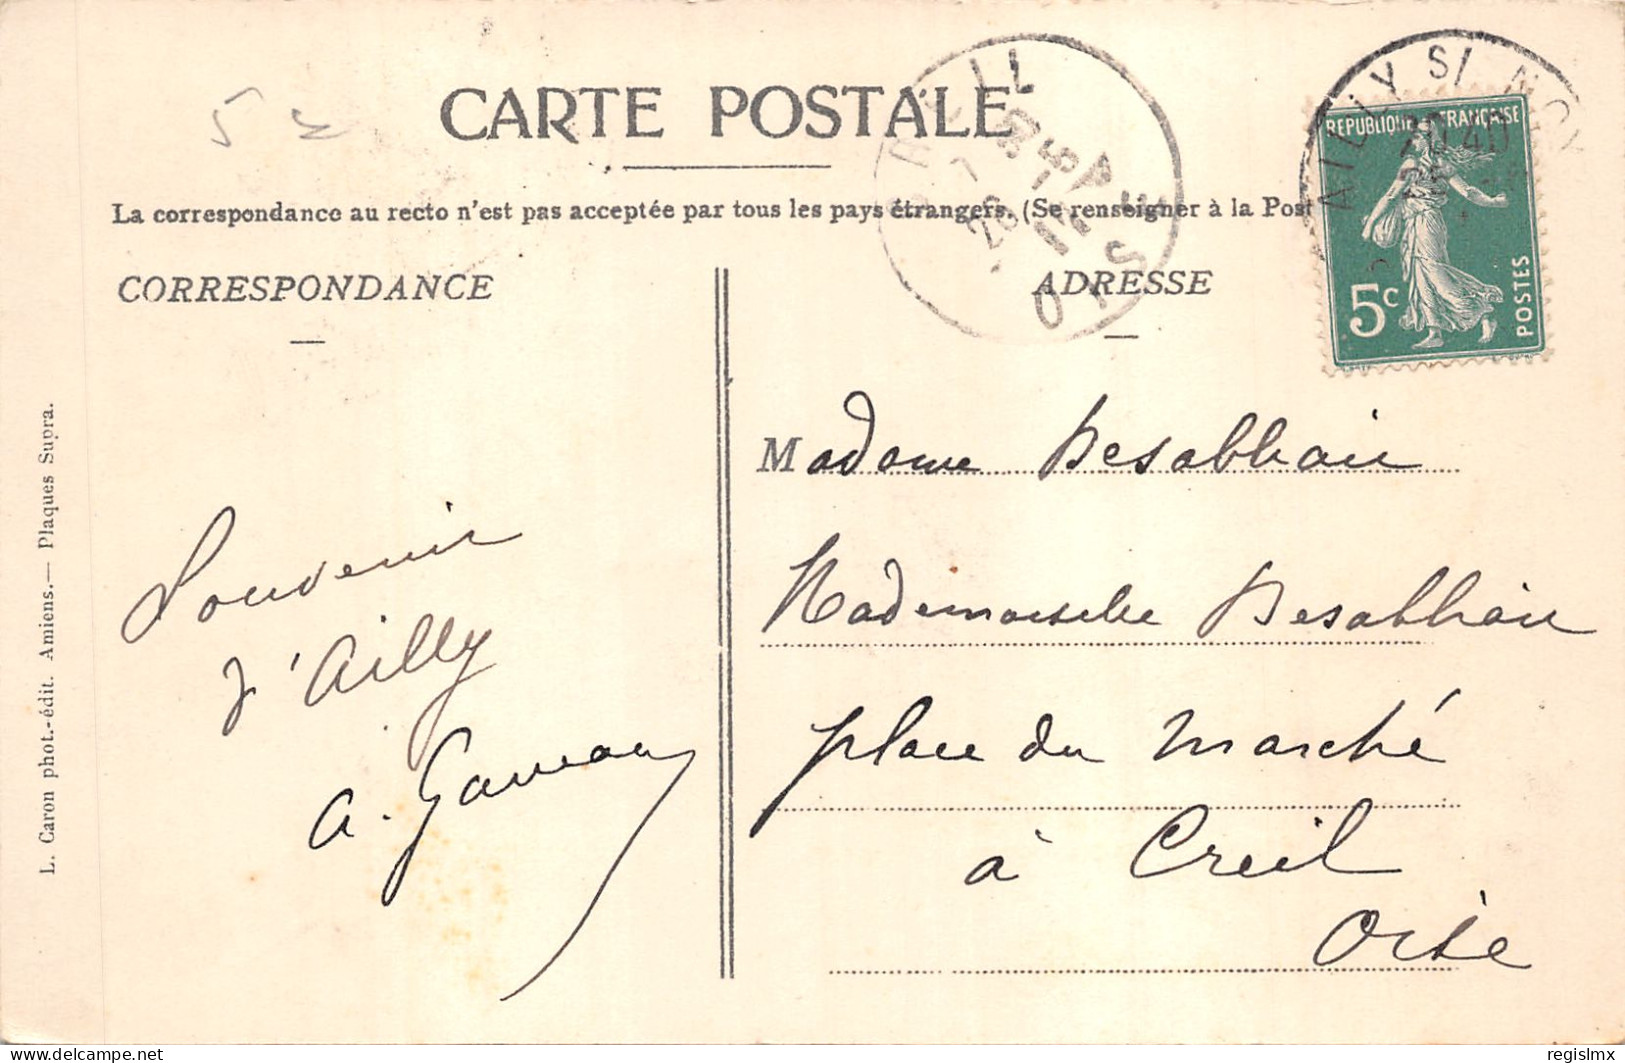 5
CARTE POSTALE
CREIL
OISE
AILLY S/ NOY
20 40
REPUBLIQUE FRANÇAISE
5c
POSTES
La correspondance au recto n'est pas acceptée par tous les pays étrangers. (Se renseigner à la Post
CORRESPONDANCE
ADRESSE
Souvenir
d'Ailly
a.
Madame
Mademoiselle
place du Marché
à Creil
Oise
L. Caron phot.-édit. Amiens.— Plaques Supra.
delcampe.net
regislmx